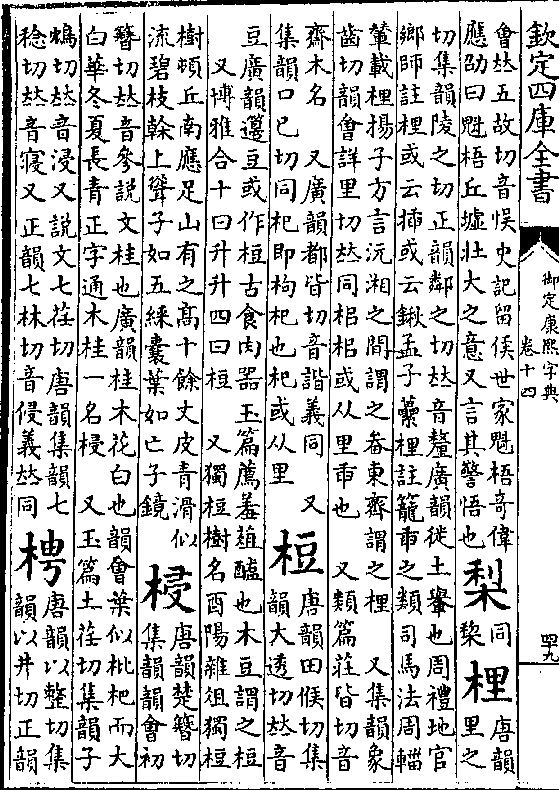 欽定四庫全書
御定康熙字典
卷十四
四九
會𠀤五故切音悮史記留侯世家魁梧竒偉
應劭曰魁梧丘墟壯大之意又言其警悟也
梨
同
棃
梩
唐韻
里之
切集韻陵之切正韻鄰之切𠀤音釐廣韻徙土轝也周禮地官
鄉師註梩或云揷或云鍬孟子虆梩註籠臿之類司馬法周輜
輦載梩揚子方言沅湘之間謂之畚東齊謂之梩 又集韻象
齒切韻會詳里切𠀤同梠梠或从里臿也 又類篇莊皆切音
齋木名 又廣韻都皆切音諧義同 又
集韻口已切同杞即枸杞也杞或从里
梪
唐韻田候切集
韻大透切𠀤音
豆廣韻籩豆或作梪古食肉器玉篇薦羞葅醢也木豆謂之梪
又博雅合十曰升升四曰梪 又獨梪樹名酉陽雜俎獨梪
樹頓丘南應足山有之高十餘丈皮青滑似
流碧枝榦上聳子如五綵囊葉如亡子鏡
梫
唐韻楚簪切
集韻韻會初
簪切𠀤音參說文桂也廣韻桂木花白也韻會葉似枇杷而大
白華冬夏長青正字通木桂一名梫 又玉篇土荏切集韻子
鴆切𠀤音浸又說文七荏切唐韻集韻七
稔切𠀤音寢又正韻七林切音侵義𠀤同
梬
唐韻以整切集
韻以井切正韻